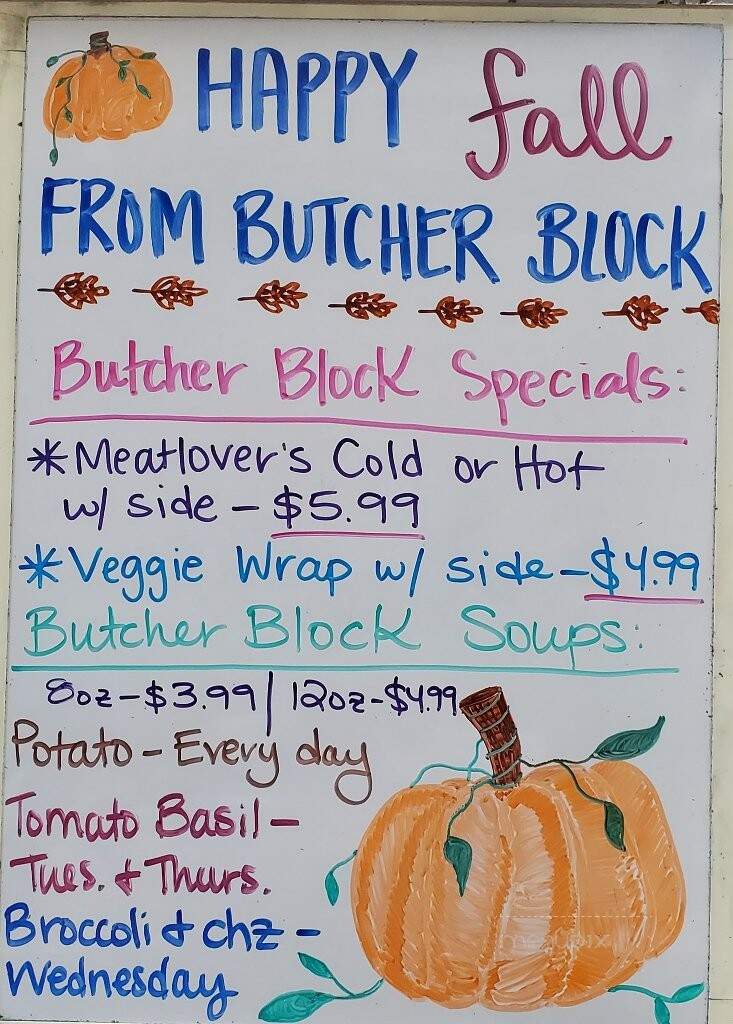 HAPPY fall
FROM BUTCHER BLOCK
Butcher Block Specials:
*Meatlover's Cold or Hot
w/ side - $5.99
*Veggie Wrap w/ side - $4.99
Butcher Block Soups:
8oz - $3.99 | 12oz - $4.99
Potato - Every day
Tomato Basil -
Tues. & Thurs.
Broccoli & chz -
Wednesday